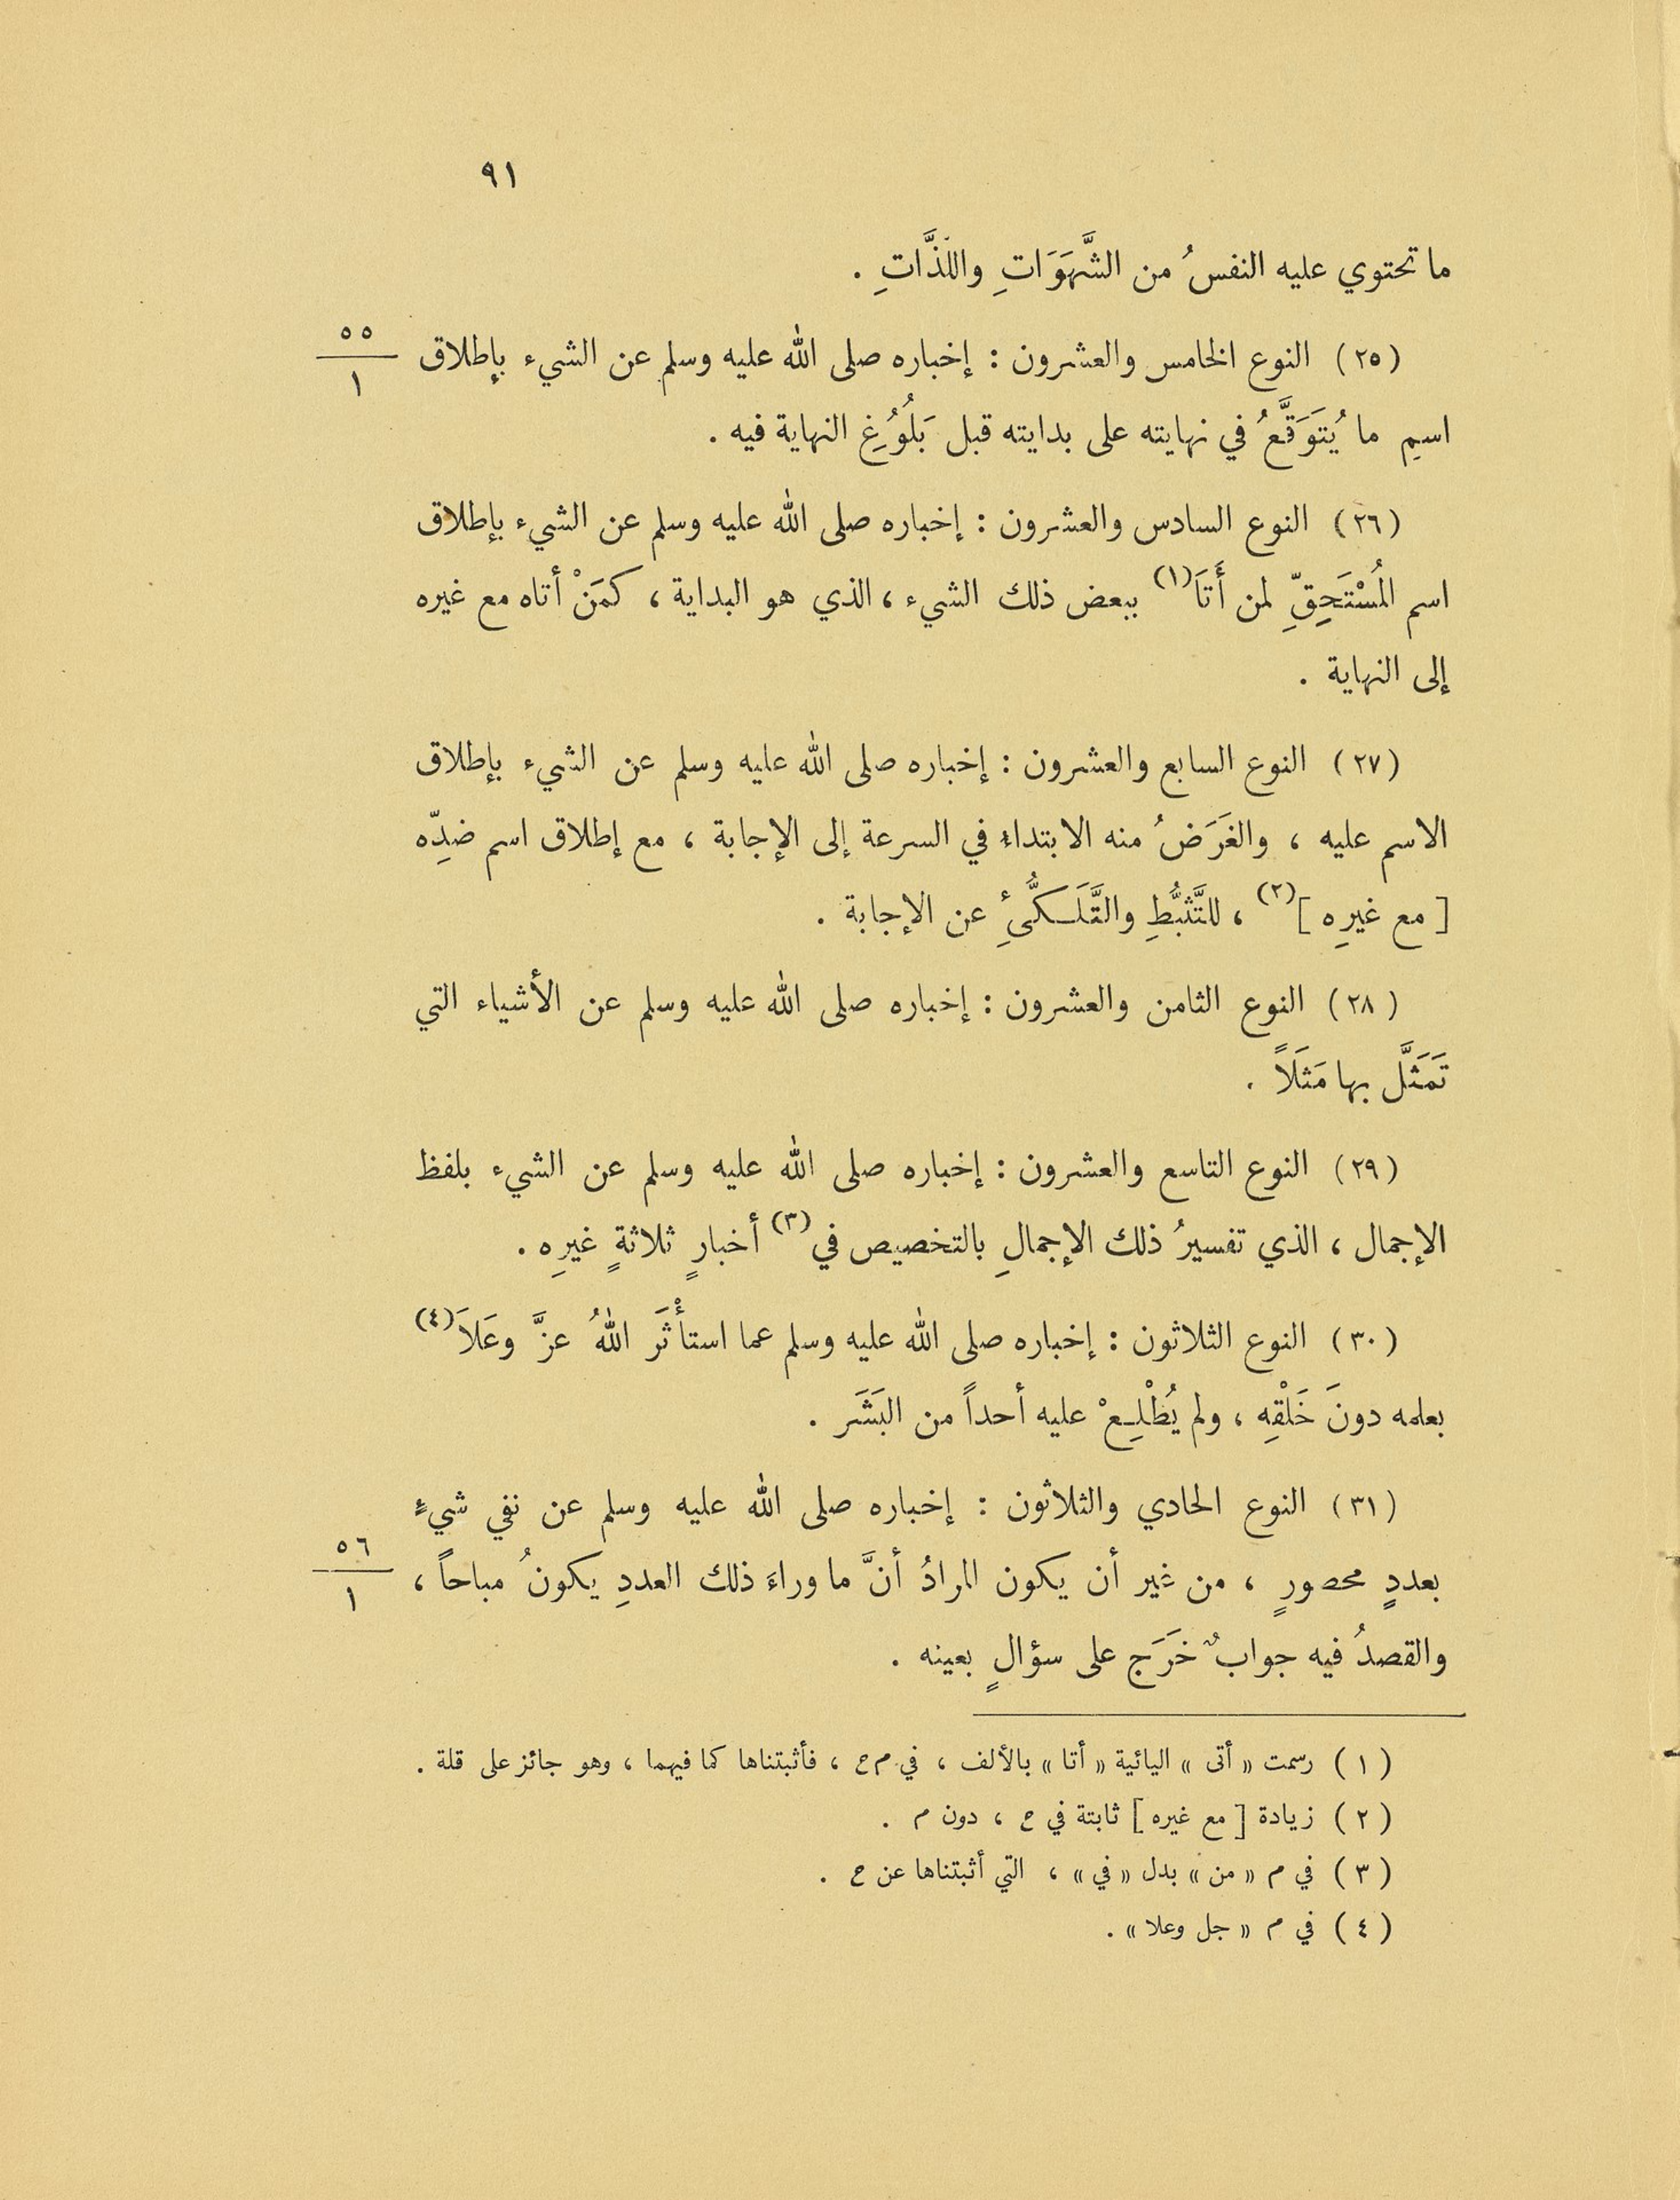 ٩١
ما تحتوي عليه النفسُ من الشَّهَوَاتِ واللَّذَّاتِ .
(٢٥) النوع الخامس والعشرون : إخباره صلى الله عليه وسلم عن الشيء بإطلاق
٥٥
١
اسمِ ما يُتَوَقَّعُ في نهايته على بدايته قبل بَلُوُغِ النهاية فيه .
(٢٦) النوع السادس والعشرون : إخباره صلى الله عليه وسلم عن الشيء بإطلاق
اسم المُسْتَحِقِّ لمن أَتَا(١) ببعض ذلك الشيء ، الذي هو البداية ، كمَنْ أتاه مع غيره
إلى النهاية .
(٢٧) النوع السابع والعشرون : إخباره صلى الله عليه وسلم عن الشيء بإطلاق
الاسم عليه ، والغَرَضُ منه الابتداء في السرعة إلى الإجابة ، مع إطلاق اسم ضدِّه
[ مع غيرِه ](٢) ، للتَّثَبُّطِ والتَّلَكُّئِ عن الإجابة .
(٢٨) النوع الثامن والعشرون : إخباره صلى الله عليه وسلم عن الأشياء التي
تَمَثَّل بها مَثَلاً .
(٢٩) النوع التاسع والعشرون : إخباره صلى الله عليه وسلم عن الشيء بلفظ
الإجمال ، الذي تفسيرُ ذلك الإجمالِ بالتخصيص في(٣) أخبارٍ ثلاثةٍ غيرِه .
(٣٠) النوع الثلاثون : إخباره صلى الله عليه وسلم عما استأْثَر اللهُ عزَّ وعَلاَ(٤)
بعلمه دونَ خَلْقِهِ ، ولم يُطْلِعْ عليه أحداً من البَشَر .
(٣١) النوع الحادي والثلاثون : إخباره صلى الله عليه وسلم عن نفي شيءٍ
بعددٍ محصورٍ ، من غير أن يكون المرادُ أنَّ ما وراءَ ذلك العددِ يكونُ مباحاً ،
٥٦
١
والقصدُ فيه جوابٌ خَرَج على سؤالٍ بعينه .
(١) رسمت « أتى » اليائية « أتا » بالألف ، في م ح ، فأثبتناها كما فيهما ، وهو جائز على قلة .
(٢) زيادة [ مع غيره ] ثابتة في ح ، دون م .
(٣) في م « من » بدل « في » ، التي أثبتناها عن ح .
(٤) في م « جل وعلا » .